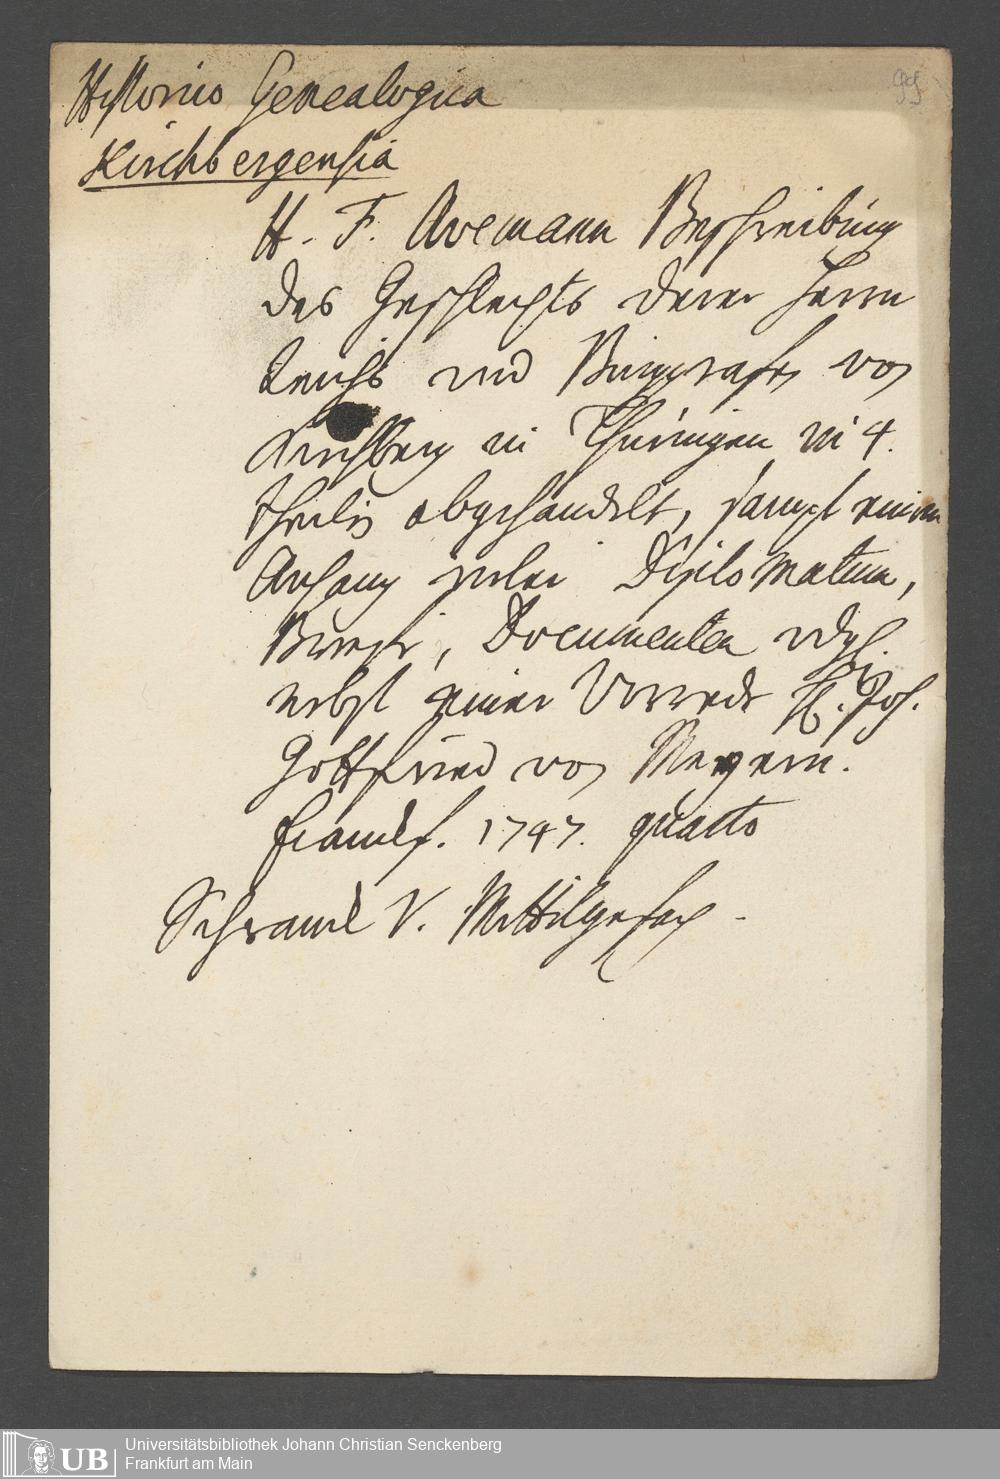 Historico Genealogica
Kirchbergensia
99
H. F. Avemann Beschreibung
des Geschlechts derer Herrn
Reichs und Burggrafen von
Kirchberg in Thüringen in 4.
Theilen abgehandelt, sampt einem
Anhang vieler Diplomatum,
Briefe, Documenten
nebst einer Vorrede H. Joh.
Gottfried von Meyern.
Franckf. 1747. quarto
Schranck V. Mittelgefach
UB
Universitätsbibliothek Johann Christian Senckenberg
Frankfurt am Main